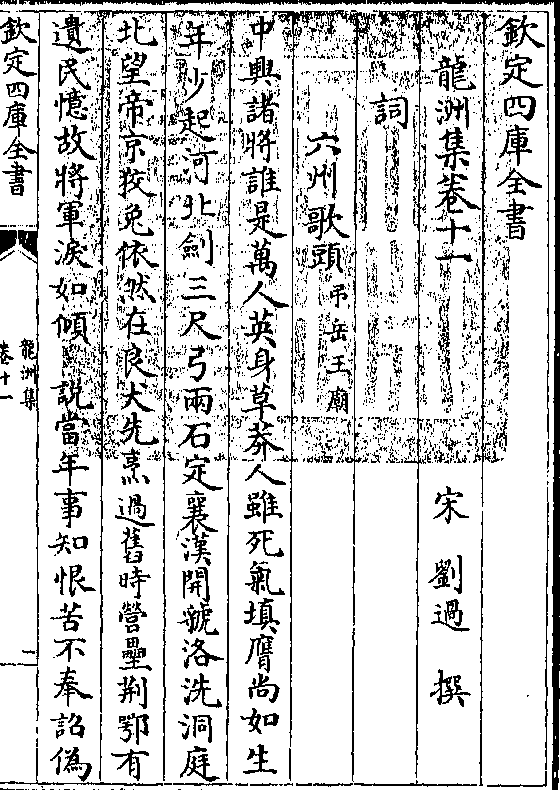 欽定四庫全書
龍洲集卷十一
宋 劉過 撰
詞
六州歌頭 弔岳王廟
中興諸將誰是萬人英身草莽人雖死氣填膺尚如生
年少起河北劍三尺弓兩石定襄漢開虢洛洗洞庭
北望帝京狡兔依然在良犬先烹過舊時營壘荆鄂有
遺民憶故將軍淚如傾 説當年事知恨苦不奉詔偽
欽定四庫全書
龍洲集
卷十一